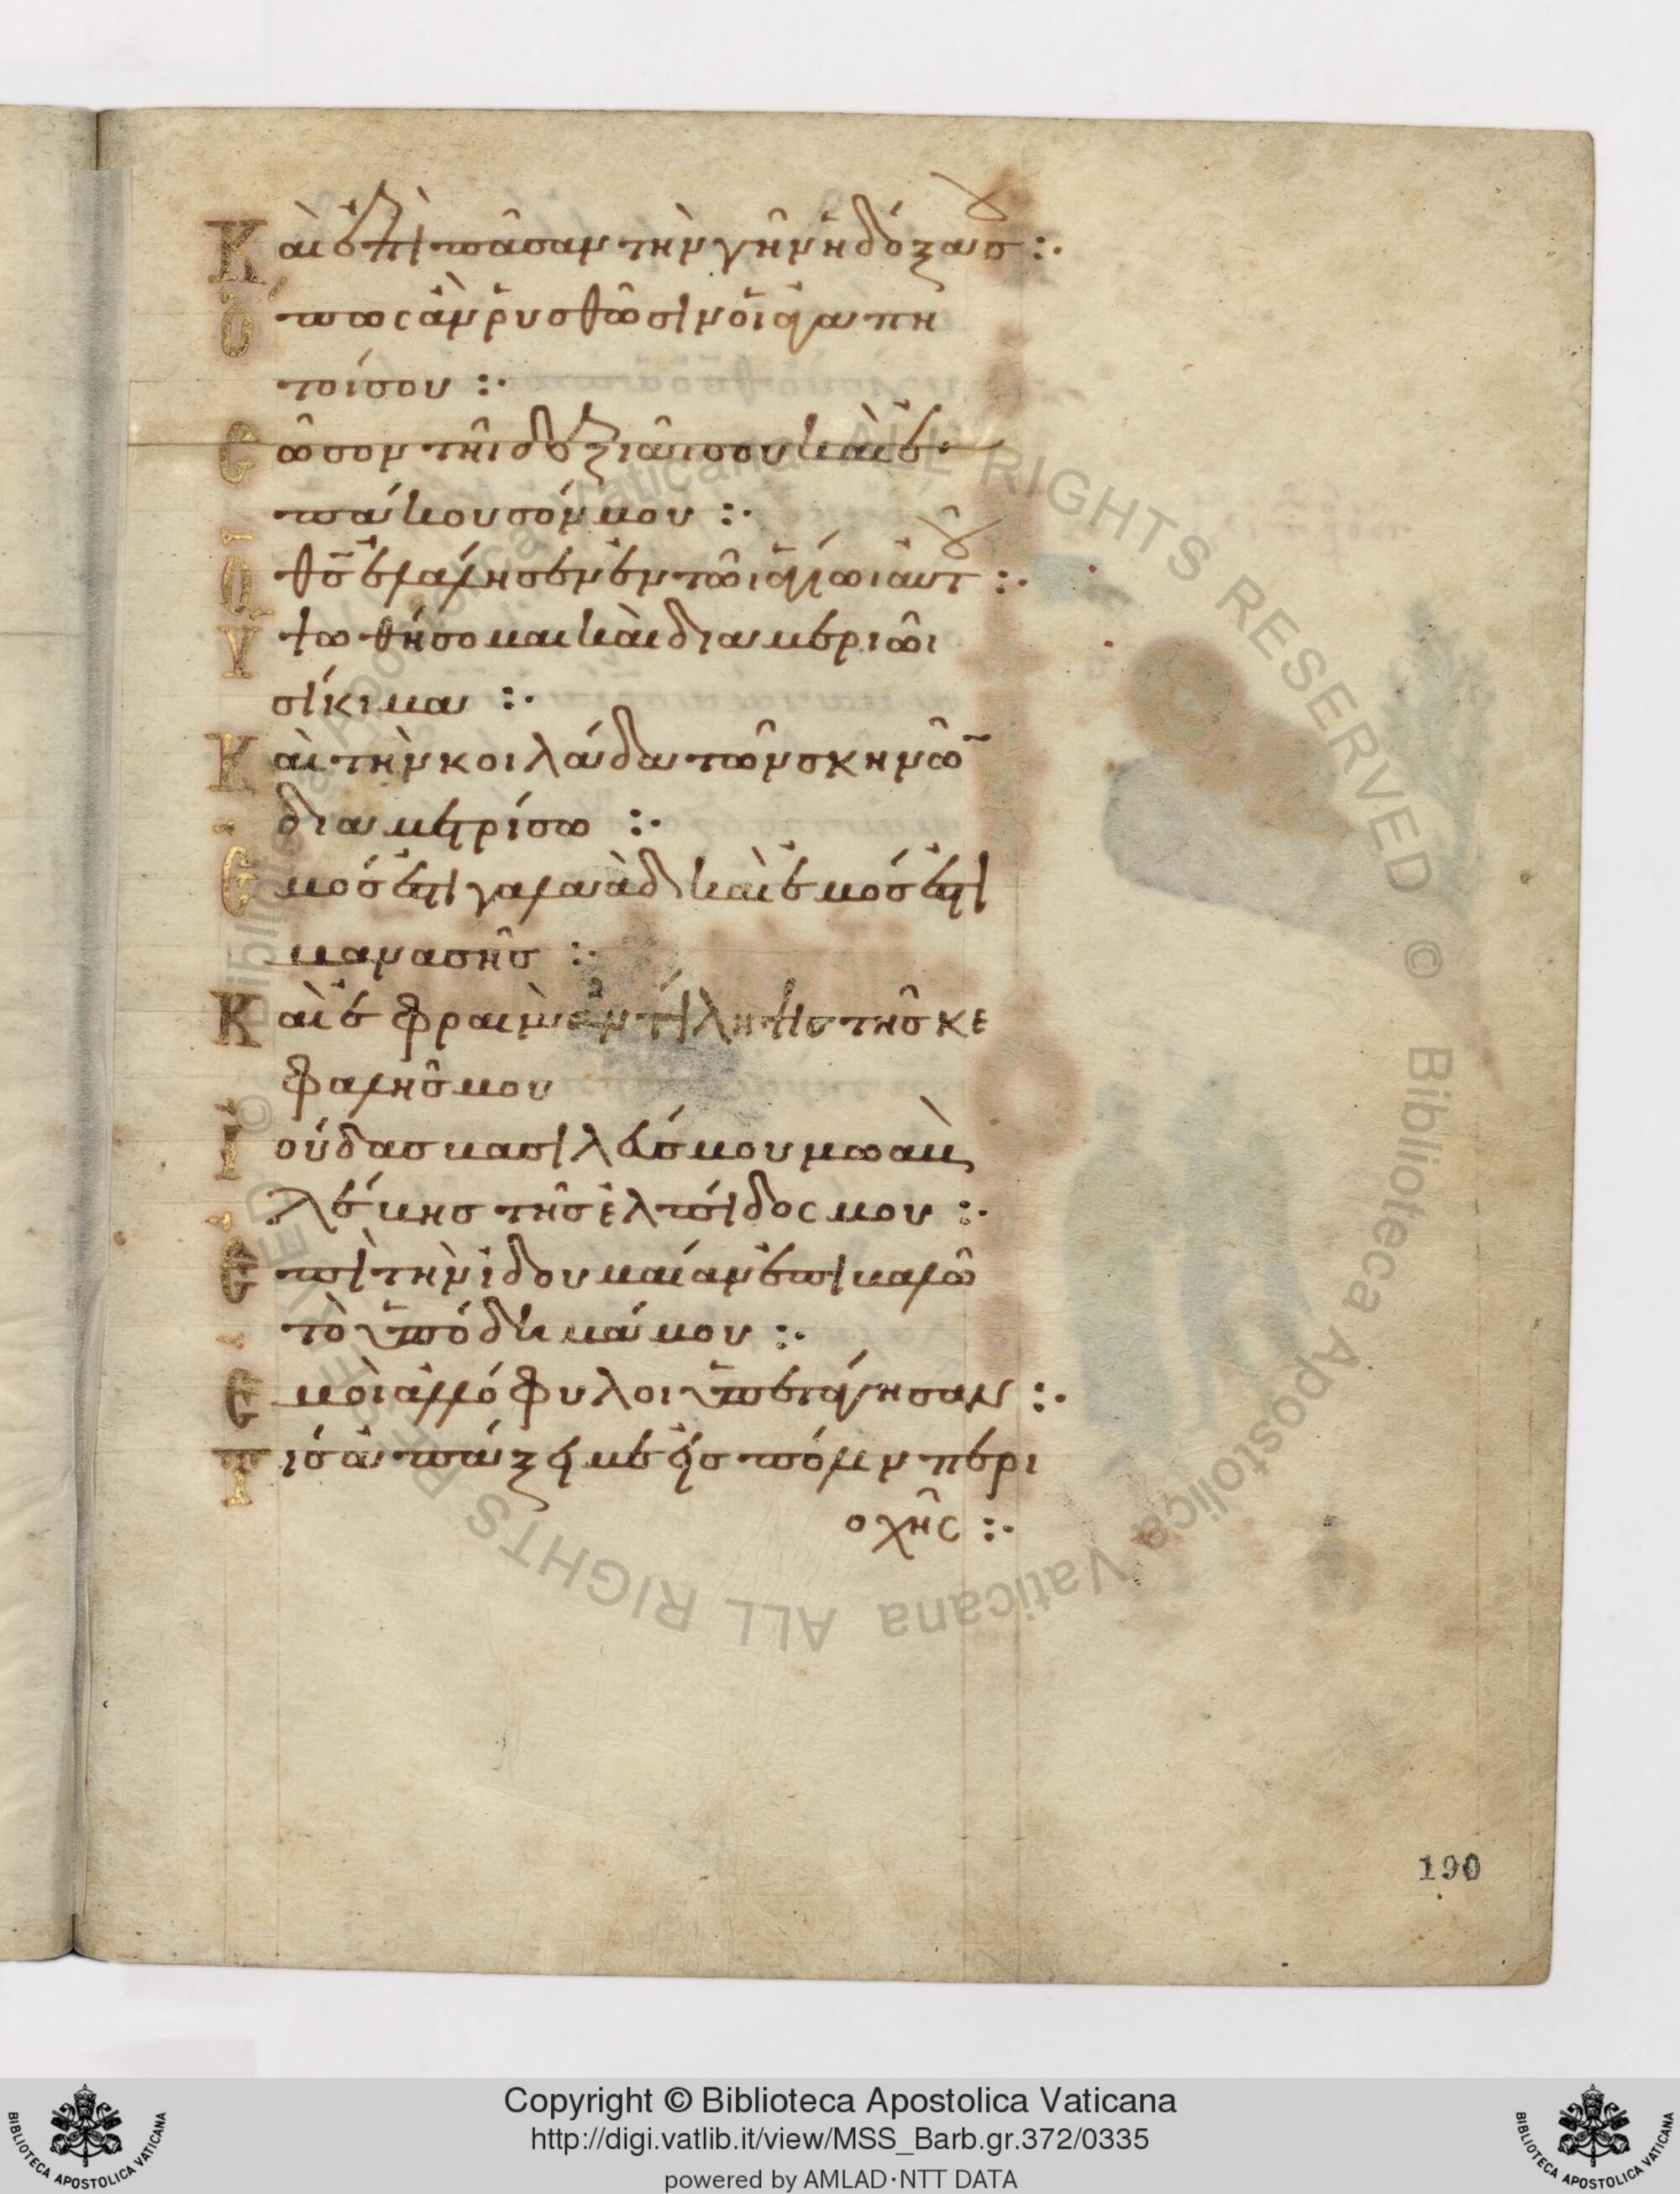 Καὶ ἐπὶ πᾶσαν τὴν γῆν ἡ δόξα σου :·
Ὅπως ἂν ῥυσθῶσιν οἱ ἀγαπη
τοί σου :·
Σῶσον τῆι δεξιᾶι σου καὶ ἐ
πάκουσόν μου :·
Ὁ θς ἐλάλησεν ἐν τῶι ἁγίωι αὐτοῦ :·
Ὑψωθήσομαι καὶ διαμεριῶι
σίκιμα :·
Καὶ τὴν κοιλάδα τῶν σκηνῶ
διαμετρίσω :·
Ἐμός ἐστι γαλαὰδ καὶ ἐμός ἐστι
μανασῆς :·
Καὶ ἐφραὶμ ἀντίληψις τῆς κε
φαλῆς μου
Ἰούδας βασιλεύς μου μωαβ
λέβης τῆς ἐλπίδος μου :·
Ἐπὶ τὴν ἰδουμαίαν ἐπιβαλῶ
τὸ ὑπόδημά μου :·
Ἐμοὶ ἀλλόφυλοι ὑπετάγησαν :·
Τίς ἀπάξει με εἰς πόλιν περι
οχῆς :·
190
Copyright © Biblioteca Apostolica Vaticana
http://digi.vatlib.it/view/MSS_Barb.gr.372/0335
powered by AMLAD·NTT DATA
BIBLIOTECA APOSTOLICA VATICANA
BIBLIOTECA APOSTOLICA VATICANA
© Biblioteca Apostolica Vaticana ALL RIGHTS RESERVED © Biblioteca Apostolica Vaticana ALL RIGHTS RESERVED